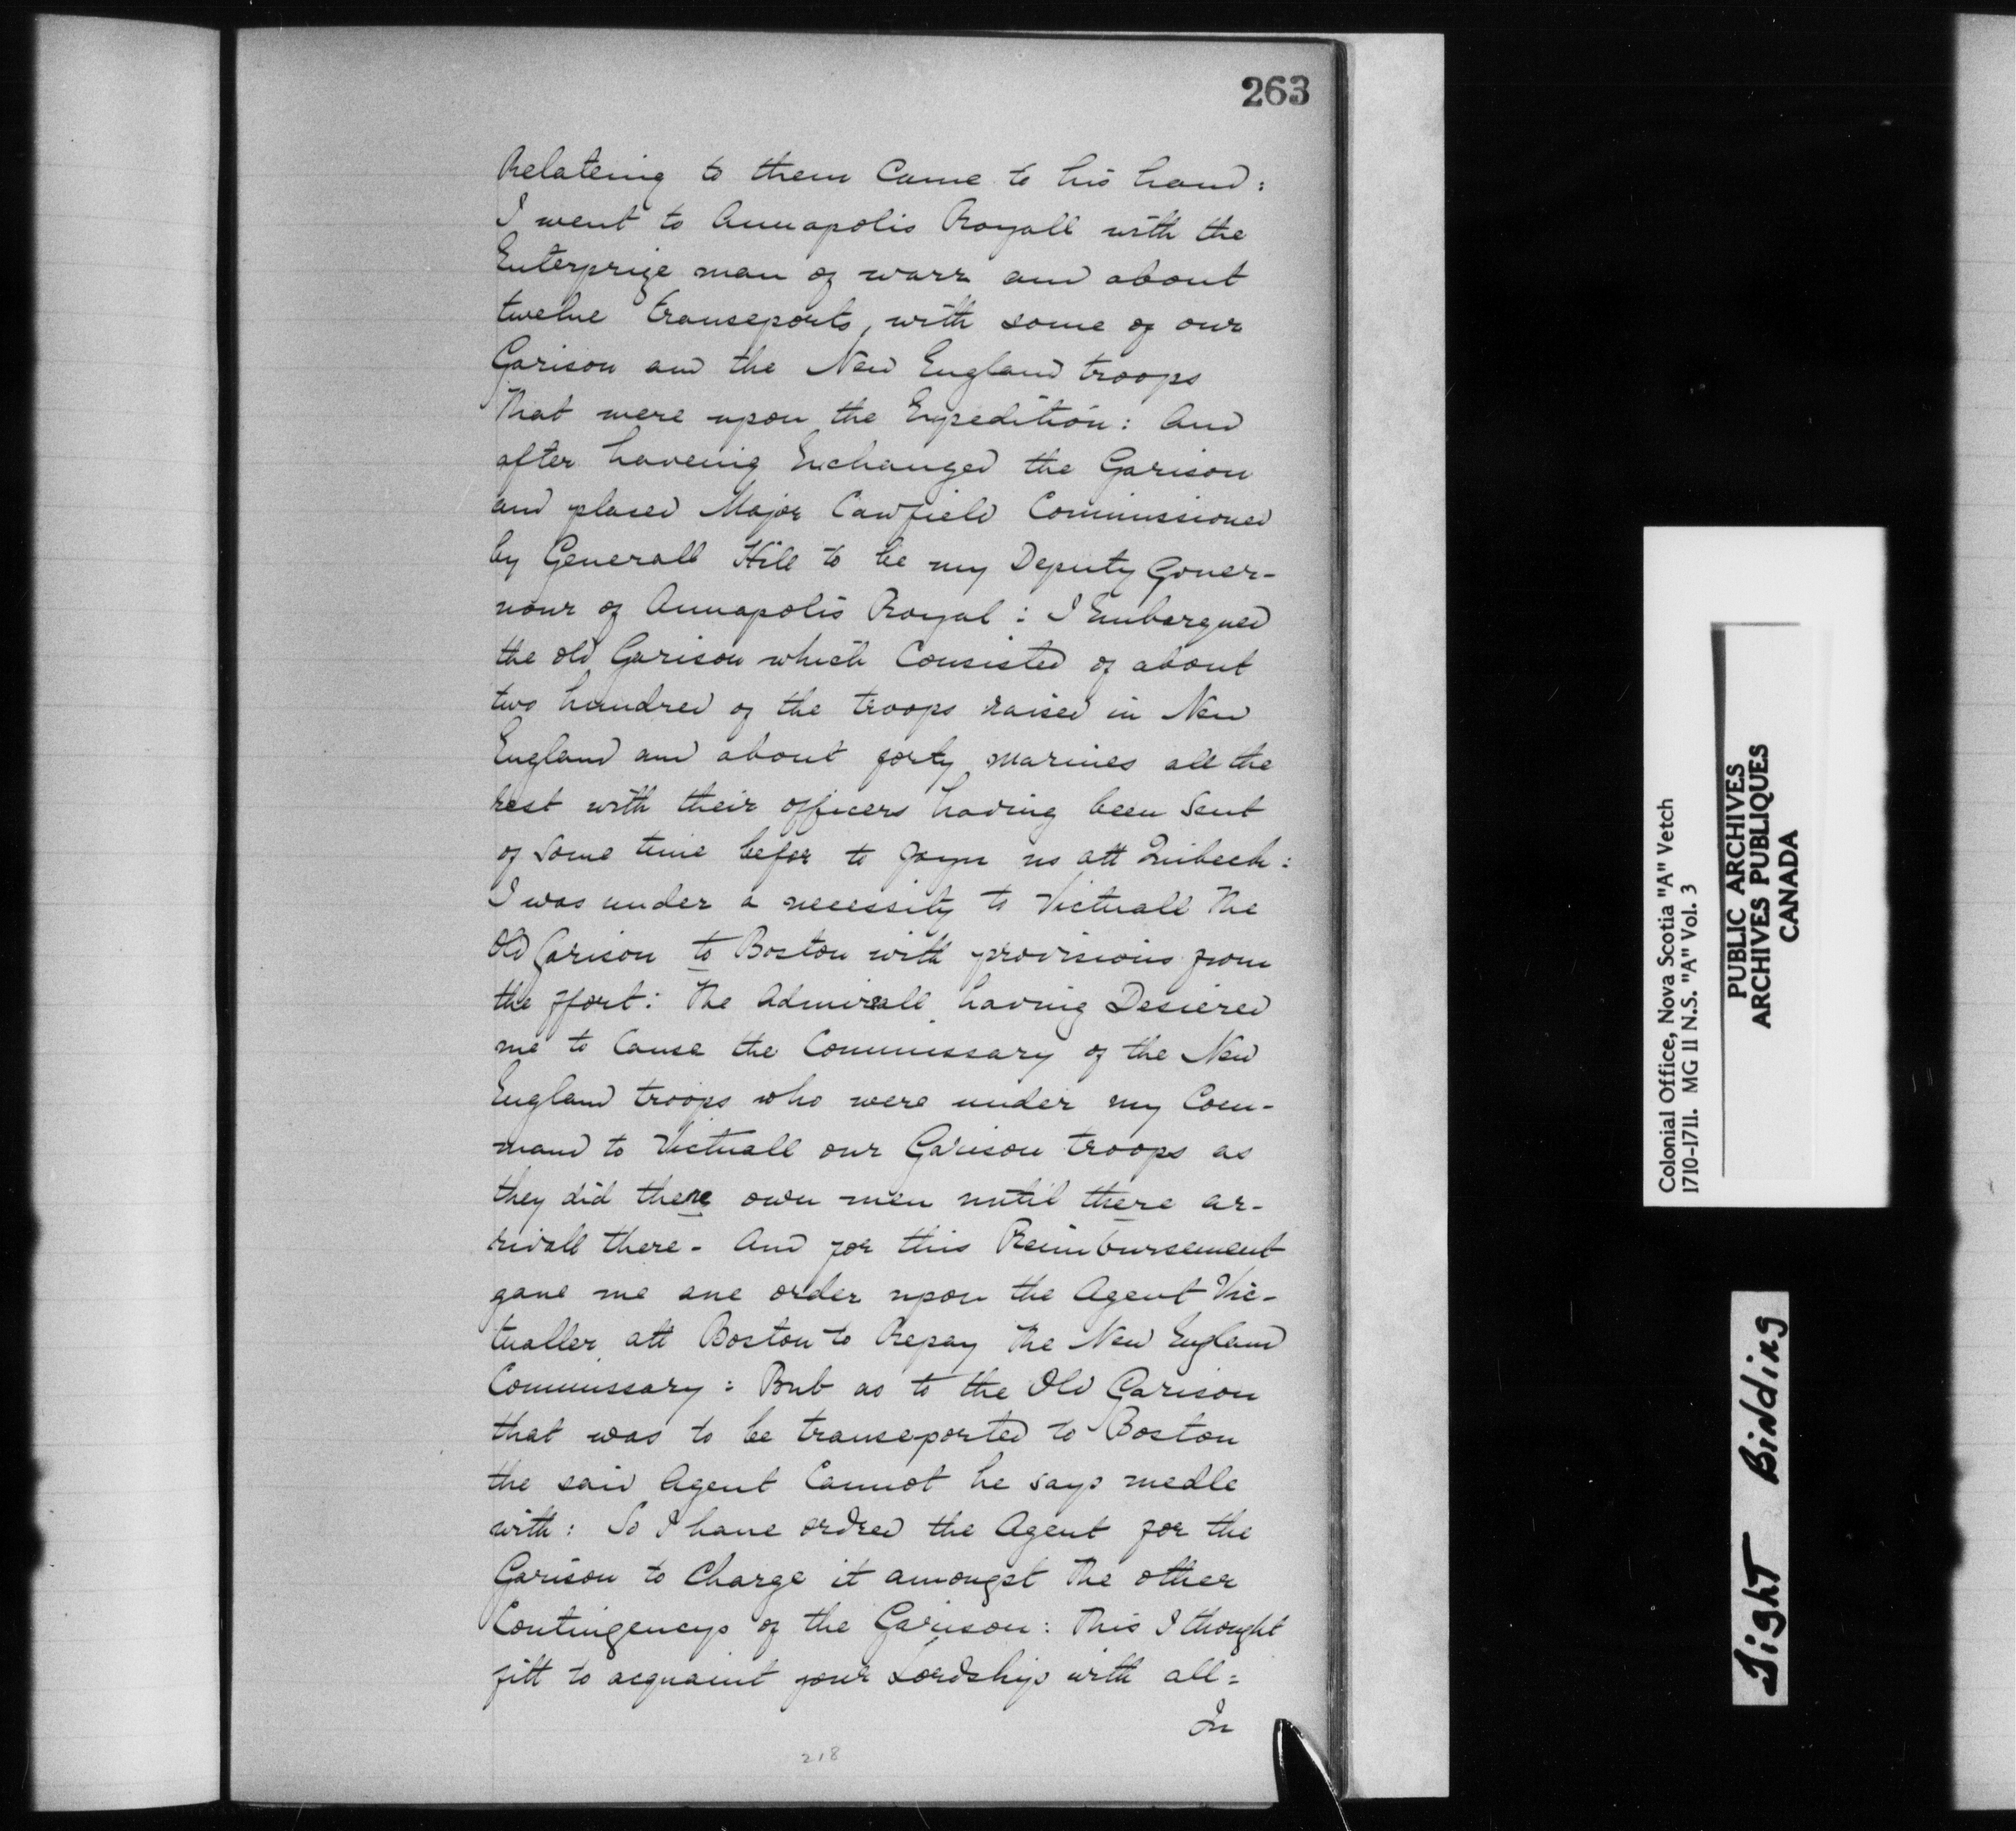 263
Relateing to them Came to his hand:
I went to Annapolis Royall with the
Enterprize man of warr and about
twelve transeports, with some of our
Garison and the New England troops
that were upon the Expedition: And
after haveing Exchanged the Garison
and placed Major Cawfield Commissioned
by Generall Hill to be my Deputy Gover-
nour of Annapolis Royal: I Embarqued
the old Garison which Consisted of about
two hundred of the troops raised in New
England and about forty marines all the
rest with their officers having been Sent
of Some time befor to joyn us att Quibeck:
I was under a necessity to Victuall The
Old Garison to Boston with provisions from
the ffort: The Admirall having Desiered
me to Cause the Commissary of the New
England troops who were under my Com-
mand to Victuall our Garison troops as
they did there own men until there ar-
rivall there - And for this Reimbursement
gave me ane order upon the Agent Vic-
tualler att Boston to Repay The New England
Commissary: But as to the Old Garison
that was to be transeported to Boston
the said Agent Cannot he says medle
with: So I have ordred the Agent for the
Garison to Charge it amongst The other
Contingencys of the Garison: This I thought
fitt to acquaint your Lordships with all:
In
218
Colonial Office, Nova Scotia "A" Vetch
1710-1711. MG 11 N.S. "A" Vol. 3
PUBLIC ARCHIVES
ARCHIVES PUBLIQUES
CANADA
Tight Binding